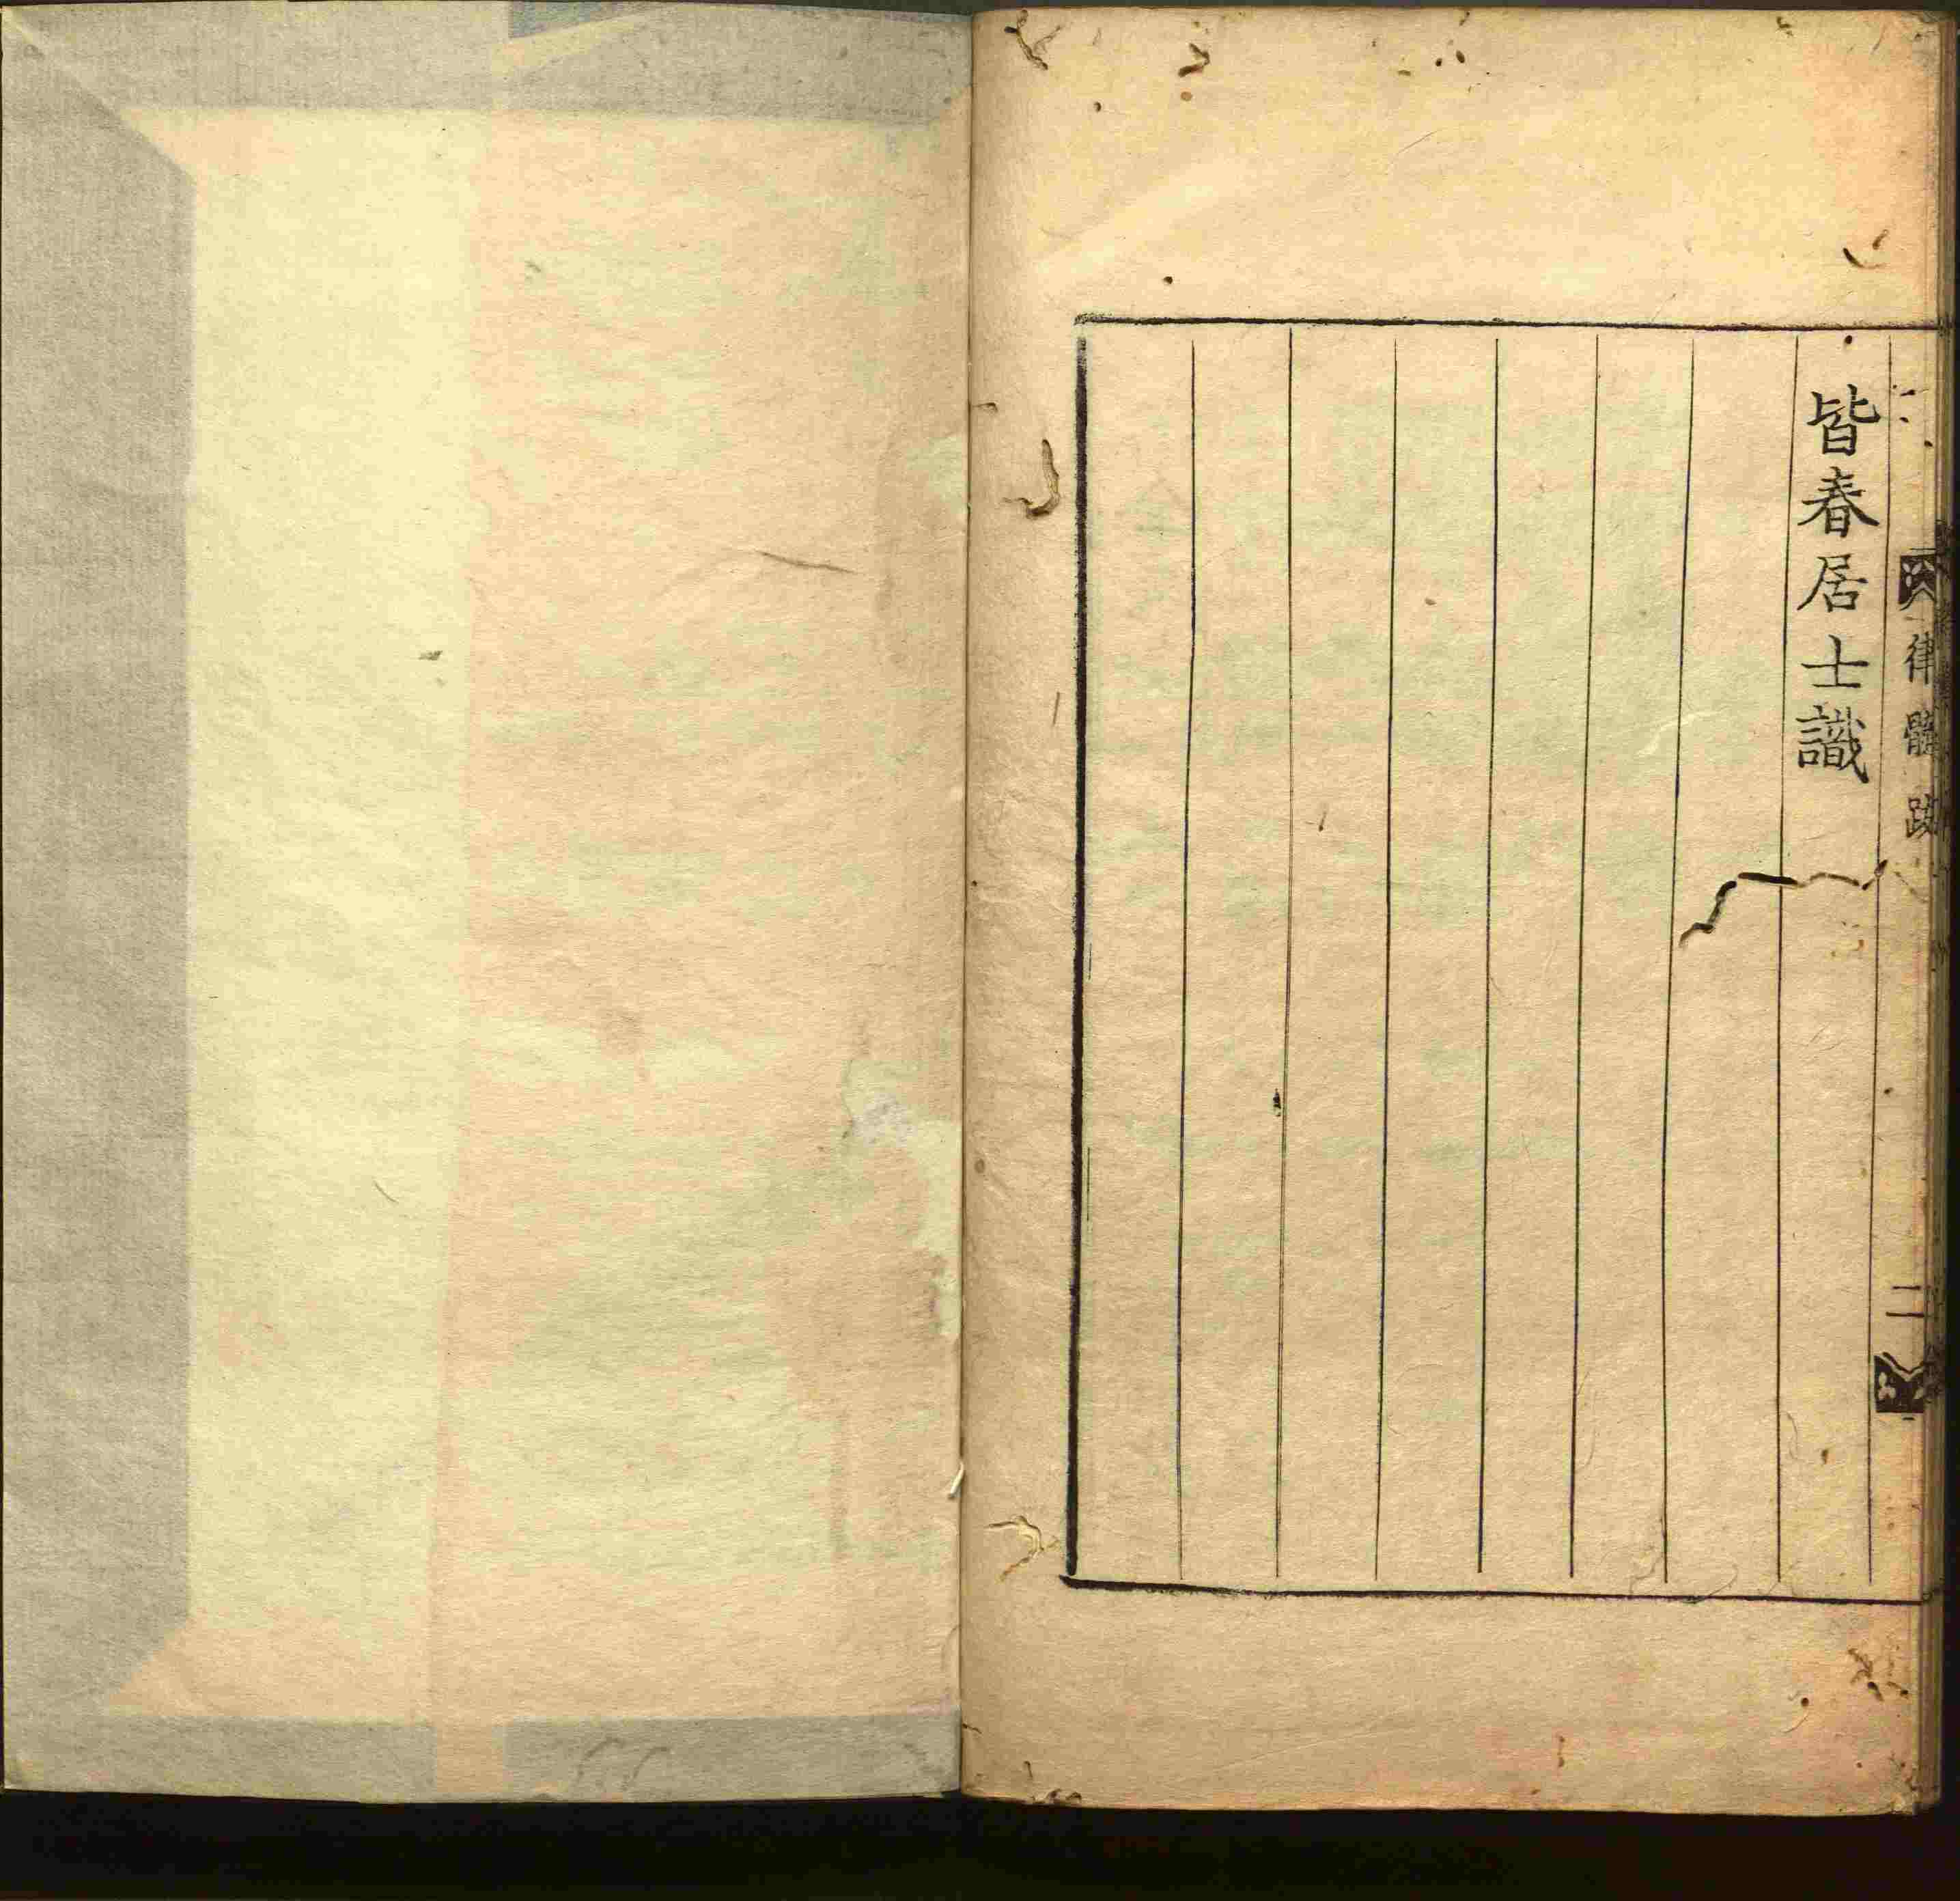 皆春居士識
律髓跋
二